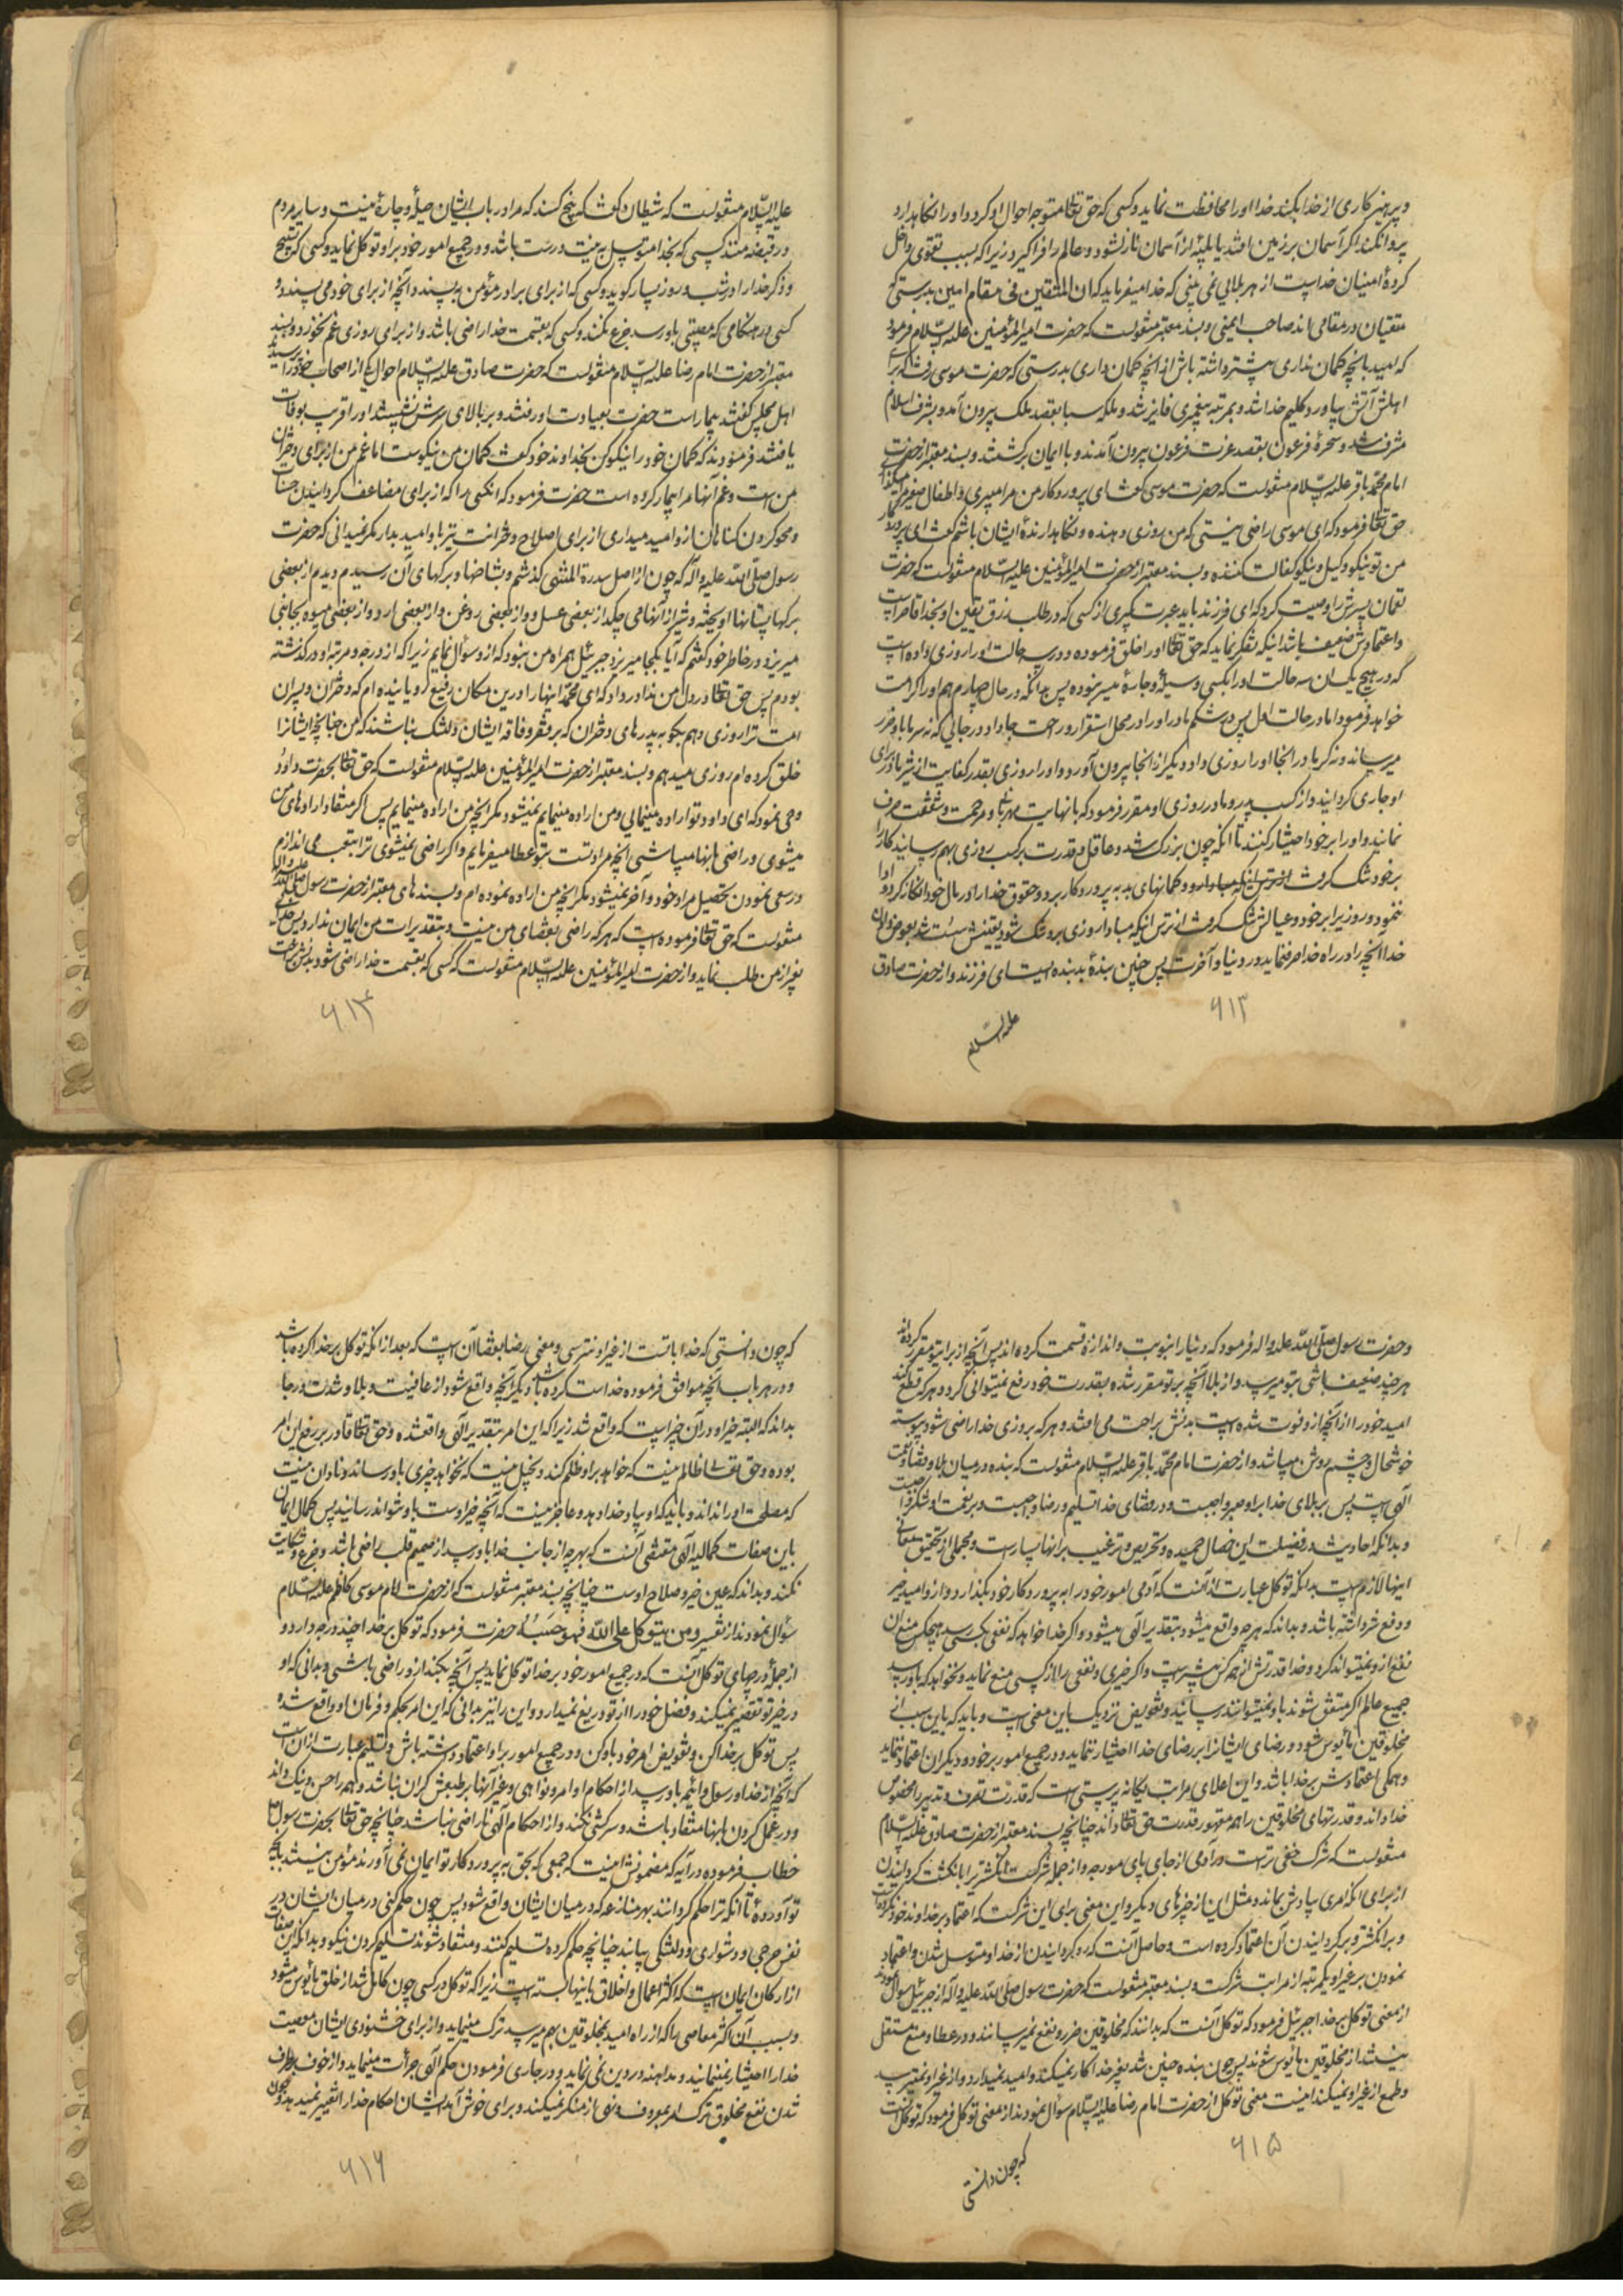 و پرهیزکاری از خدا بکند خدا او را محافظت نماید و کسی که حق تعالی متوجه احوال او گردد و او را نگاهدارد
پروا نکند اگر آسمان بر زمین افتد یا بلیّه از آسمان نازل شود و عالم را فرا گیرد زیرا که بسبب تقوی داخل
کردهٔ امنیان خداست از هر بلائی نمی بینی که خدا میفرماید که ان المتقین فی مقام امین بدرستی که
متقیان در مقامی اند صاحب ایمنی و بسند معتبر منقولست که حضرت امیرالمؤمنین علیه السّلام فرمود
که امید بآنچه گمان نداری بیشتر داشته باش از آنچه گمان داری بدرستی که حضرت موسی رفت که برای
اهلش آتش بیاورد کلیم خدا شد و بمرتبه پیغمبری فایز شد و ملکه سبا بقصد ملک بیرون آمد و بشرف اسلام
مشرف شد و سحرهٔ فرعون بقصد عزت فرعون بیرون آمدند و با ایمان برگشتند و بسند معتبر از حضرت
امام محمّد باقر علیه السّلام منقولست که حضرت موسی گفت ای پروردگار من مرا میبری و اطفال صغیر مرا میگذاری
حق تعالی فرمود که ای موسی راضی نیستی که من روزی دهنده و نگاهدارندهٔ ایشان باشم گفت ای پروردگار
من تو نیکو وکیل و نیکو کفالت کننده و بسند معتبر از حضرت امیرالمؤمنین علیه السّلام منقولست که حضرت
لقمان پسرش را وصیت کرد که ای فرزند باید عبرت گیری از کسی که در طلب رزق یقین او بخدا قاصر است
و اعتمادش ضعیف باشد اینکه تفکر نماید که حق تعالی او را خلق فرموده و در سه حالت او را روزی داده است
که در هیچ یک از آن سه حالت او را کسبی و وسیلهٔ و چارهٔ میسر نبوده پس بداند که در حال چهارم هم او را کرامت
خواهد فرمود اما در حالت اول پس در شکم مادر او را در محل استقرار و راحت جا داد و در جائی که نه سرما باو ضرر
میرساند و نه گرما در آنجا او را روزی داد و دیگر از آنجا بیرون آورد و او را روزی بقدر کفایت از شیر مادر برای
او جاری گردانید و از کسب پدر و مادر روزی او مقرر فرمود که با نهایت مهربانی و مرحمت و شفقت صرف
نمایند و او را بر خود اختیار کنند تا آنکه چون بزرگ شد و عاقل و قدرت بر کسب روزی بهم رسانید کار را
بر خود تنگ گرفت از ترس اینکه مبادا و گمانهای بد به پروردگار برد و حقوق خدا را در مال خود انکار کرد و ادا
ننمود و روز برابر خود و عیالش تنگ گرفت از ترس اینکه مبادا روزی برو تنگ شود یقینش سست شد بعوض دادن
خدا آنچه را در راه خدا صرف نماید در دنیا و آخرت پس چنین بندهٔ بد بنده ایست ای فرزند و از حضرت صادق
۶۱۳
علیه السّلام
علیه السّلام منقولست که شیطان گفت که پنج کسند که مرا در باب ایشان حیلهٔ و چارهٔ نیست و سایر مردم
در قبضه منند کسی که بخدا متوسل به نیت درست باشد و در جمیع امور خود بر او توکل نماید و کسی که تسبیح
و ذکر خدا را در شب و روز بسیار گوید و کسی که از برای برادر مؤمن بپسندد آنچه از برای خود می پسندد و
کسی در هنگامی که مصیبتی باو رسد جزع نکند و کسی که بقسمت خدا راضی باشد و از برای روزی غم نخورد و بسند
معتبر از حضرت امام رضا علیه السّلام منقولست که حضرت صادق علیه السّلام احوال یکی از اصحاب خود را پرسیدند
اهل مجلس گفتند بیمار است حضرت بعیادت او رفتند و بر بالای سرش نشستند او را قریب بوفات
یافتند فرمودند که گمان خود را نیکو کن بخداوند خود گفت گمان من نیکوست اما غم من از برای دختران
من است و غم آنها مرا بیمار کرده است حضرت فرمود که آنکسی را که از برای مضاعف گردانیدن حسنات
و محو کردن گناهان ازو امید میداری از برای اصلاح دخترانت نیز باو امید بدار مگر نمیدانی که حضرت
رسول صلّی اللّه علیه و آله که چون از اصل سدرة المنتهی گذشتم و بشاخها و برگهای آن رسیدم دیدم از بعضی
برگها پستانها آویخته و شیر از آنها می چکد از بعضی عسل و از بعضی روغن و از بعضی آرد و از بعضی میوه بجانبی
میریزد در خاطر خود گفتم که آیا بکجا میریزد جبرئیل همراه من نبود که ازو سؤال نمایم زیرا که از درجه و مرتبه او درگذشته
بودم پس حق تعالی در دل من ندا در داد که ای محمّد اینها را درین مکان رفیع رویانیده ام که دختران و پسران
امت ترا روزی دهم بگو به پدرهای دختران که بر فقر و فاقه ایشان دلتنگ نباشند که من چنانچه ایشان را
خلق کرده ام روزی میدهم و بسند معتبر از حضرت امیرالمؤمنین علیه السّلام منقولست که حق تعالی بحضرت داود
وحی نمود که ای داود تو اراده مینمائی و من اراده مینمایم نمیشود مگر آنچه من اراده مینمایم پس اگر منقاد ارادهای من
میشوی و راضی بآنها میباشی آنچه مراد تست بتو عطا میفرمایم و اگر راضی نمیشوی ترا بتعب می اندازم
در سعی نمودن تحصیل مراد خود و آخر نمیشود مگر آنچه من اراده نموده ام و بسندهای معتبر از حضرت رسول صلّی اللّه علیه و آله
منقولست که حق تعالی فرموده است که هر که راضی بقضای من نیست و بتقدیرات من ایمان ندارد پس خدائی
بغیر از من طلب نماید و از حضرت امیرالمؤمنین علیه السّلام منقولست که کسی که بقسمت خدا راضی شود بدنش براحت
۶۱۴
و حضرت رسول صلّی اللّه علیه و اله فرمود که دنیا را بنوبت و اندازه قسمت کرده اند پس آنچه از برای تو مقرر کرده اند
هر چند ضعیف باشی بتو میرسد و از بلا آنچه بر تو مقرر شده بقدرت خود رفع نمیتوانی کرد و هر که قطع کند
امید خود را از آنچه ازو فوت شده است بدنش براحت می افتد و هر که بروزی خدا راضی شود پیوسته
خوشحال و چشم روشن میباشد و از حضرت امام محمّد باقر علیه السّلام منقولست که بنده در میان بلا و قضا و نعمت
الهی است پس بر بلای خدا بر او صبر واجبست و در قضای خدا تسلیم و رضا واجبست و بر نعمت او شکر واجبست
و بدانکه احادیث در فضیلت این خصال حمیده و تحریص و ترغیب بر آنها بسیار است و مجملی از تحقیق معانی
اینها لازم است بدانکه توکل عبارت از آنست که آدمی امور خود را به پروردگار خود بگذارد و ازو امید خیر
و دفع شر داشته باشد و بداند که هر چه واقع میشود بتقدیر الهی میشود و اگر خدا خواهد که نفعی بکسی رسد هیچکس منع آن
نفع ازو نمیتواند کرد و خدا قدرتش از همه کس بیشتر است و اگر خیری و نفعی را از کسی منع نماید و نخواهد که باو رسد
جمیع عالم اگر متفق شوند باو نمیتوانند رسانید و تفویض نزدیک باین معنی است و باید که باین سبب از
مخلوقین مأیوس شود و رضای ایشان را بر رضای خدا اختیار ننماید و در جمیع امور بر خود و دیگران اعتماد ننماید
و همگی اعتمادش بر خدا باشد و این اعلای مراتب یگانه پرستی است که قدرت تصرف و تدبیر را مخصوص
خدا داند و قدرتهای مخلوقین را همه مقهور قدرت حق تعالی داند چنانچه بسند معتبر از حضرت صادق علیه السّلام
منقولست که شرک خفی ترست در آدمی از جای پای مورچه و از جمله شرکست انگشتر را بانگشت گردانیدن
از برای آنکه امری بیادش بماند و مثل این از چیزهای دیگر و این معنی برای این شرکست که اعتماد بر خداوند خود نکرده است
و بر انگشتر و برگردانیدن آن اعتماد کرده است و حاصل آنست که رو گردانیدن از خدا و متوسل شدن و اعتماد
نمودن بر غیر او یکمرتبه از مراتب شرکست و بسند معتبر منقولست که حضرت رسول صلی اللّه علیه و آله از جبرئیل سؤال نمود
از معنی توکل بر خدا جبرئیل فرمود که توکل آنست که بدانند که مخلوقین ضرر و نفع نمیرسانند و در عطا و منع مستقل
نیستند از مخلوقین مأیوس شوند پس چون بنده چنین شد بغیر خدا کار نمیکند و امید نمیدارد و از غیر او نمیترسد
و طمع از غیر او نمیکند اینست معنی توکل از حضرت امام رضا علیه السّلام سؤال نمودند از معنی توکل فرمود که توکل آنست
۶۱۵
که چون دانستی
که چون دانستی که خدا با تست از غیر او نترسی و معنی رضا بقضا آن است که بعد از آنکه توکل بر خدا کرده باشد
و در هر باب آنچه موافق فرموده خداست کرده باشد دیگر آنچه واقع شود از عافیت و بلا و شدت و رخا
بداند که البته خیر او در آن چیز است که واقع شد زیرا که این امر بتقدیر الهی واقع شده و حق تعالی قادر بر رفع این امر
بوده و حق تعالی ظالم نیست که خواهد بر او ظلم کند و بخیل نیست که نخواهد چیزی باو رساند و نادان نیست
که مصلحت او را نداند و باید که او بیاد خدا دهد و عاجز نیست که آنچه خیر اوست باو نتواند رسانید پس کمال ایمان
باین صفات کمالیهٔ الهی مقتضی آنست که بهر چه از جانب خدا باو رسد از صمیم قلب راضی باشد و جزع و شکایت
نکند و بداند که عین خیر و صلاح اوست چنانچه بسند معتبر منقولست که از حضرت امام موسی کاظم علیه السّلام
سؤال نمودند از تفسیر و من یتوکل علی اللّه فهو حسبه حضرت فرمود که توکل بر خدا چند درجه دارد و
از جمله درجهای توکل آنست که در جمیع امور خود بر خدا توکل نماید پس آنچه بکند ازو راضی باشی و بدانی که او
در خیر تو تقصیر نمیکند و فضل خود را از تو دریغ نمیدارد و این را نیز بدانی که این امر بحکم و فرمان او واقع شده
پس توکل بر خدا کن و تفویض امر خود باو کن و در جمیع امور بر او اعتماد داشته باش و تسلیم عبارت از آن است
که آنچه از خدا و رسول و ائمه باو رسد از احکام و اوامر و نواهی و غیر آنها بر طبعش گران نباشد و همه را حسن و نیک داند
و در عمل کردن بآنها منقاد باشد و سرکشی نکند و از احکام الهی ناراضی نباشد چنانچه حق تعالی بحضرت رسول ص
خطاب فرموده در آیه که مضمونش اینست که جمعی که بحق به پروردگار تو ایمان نمی آورند مؤمن نیستند بآنچه
تو آورده تا آنکه ترا حکم گردانند بهر منازعه که در میان ایشان واقع شود پس چون حکم کنی در میان ایشان در
نفس حرجی و دشواری و دلتنگی نیابند چنانچه حکم کرده تسلیم کنند و منقاد شوند تسلیم کردن نیکو و بدانکه این صفات
از ارکان ایمان است که اکثر اعمال و اخلاق باینها بسته است زیرا که توکل در کسی چون کامل شد از خلق مأیوس میشود
و بسبب آن اکثر معاصی را که از راه امید بمخلوقین بهم میرسد ترک مینماید و از برای خشنودی ایشان معصیت
خدا را اختیار نمینماید و مداهنه در دین نمی نماید و در جاری فرمودن حکم الهی جرأت مینماید و از خوف برطرف
شدن نفع مخلوق ترک امر بمعروف و نهی از منکر نمیکند و برای خوش آمد ایشان احکام خدا را تغییر نمیدهد و چون
۶۱۶